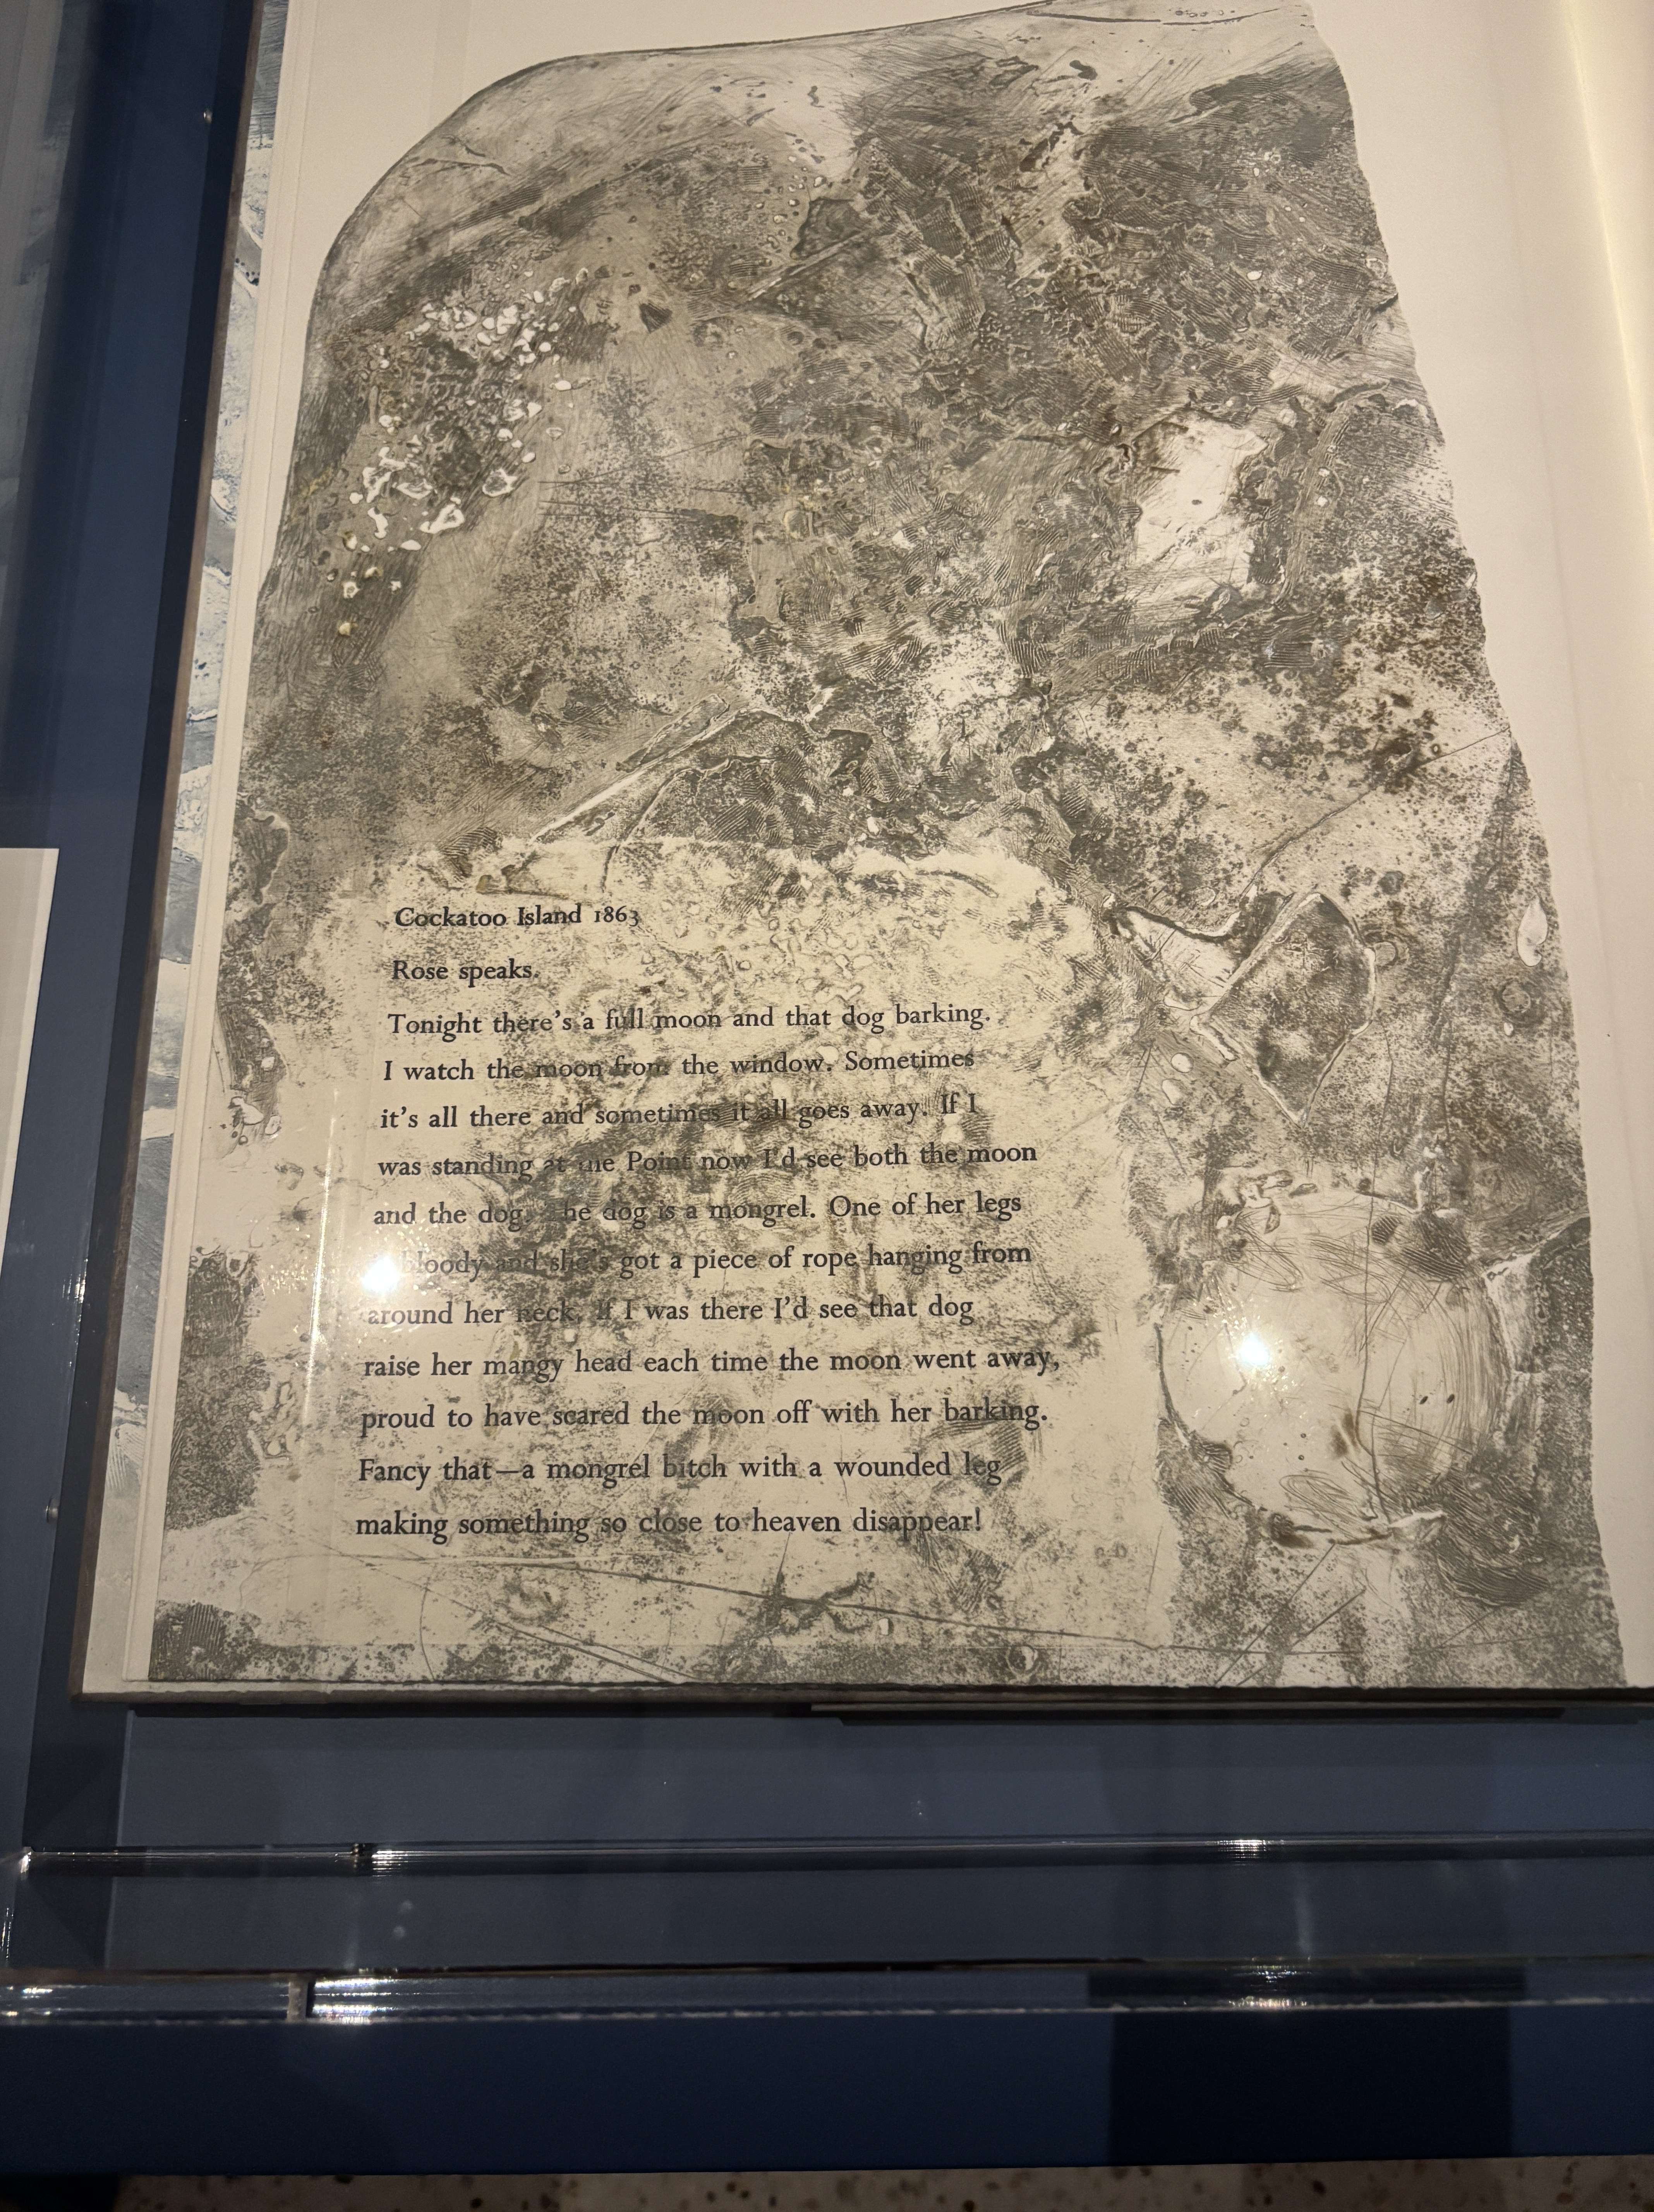 Cockatoo Island 1863
Rose speaks.
Tonight there's a full moon and that dog barking.
I watch the moon from the window. Sometimes
it's all there and sometimes it all goes away. If I
was standing at the Point now I'd see both the moon
and the dog. The dog is a mongrel. One of her legs
bloody and she's got a piece of rope hanging from
around her neck. If I was there I'd see that dog
raise her mangy head each time the moon went away,
proud to have scared the moon off with her barking.
Fancy that—a mongrel bitch with a wounded leg
making something so close to heaven disappear!